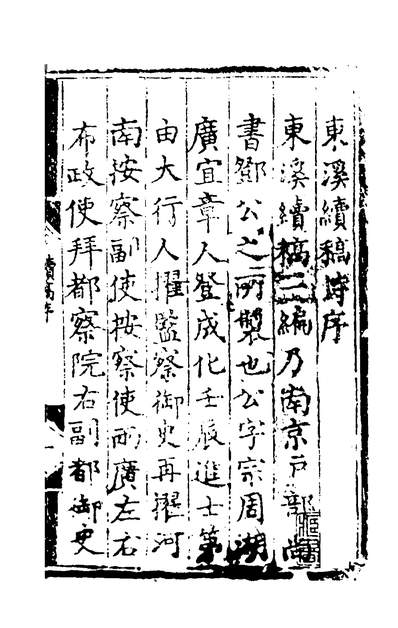 東溪續稿詩序
東溪續稿三編乃南京戶部尚
書鄧公之所製也公字宗周湖
廣宜章人登成化壬辰進士第
由大行人擢監察御史再擢河
南按察副使按察使兩廣左右
布政使拜都察院右副都御史
續稿序